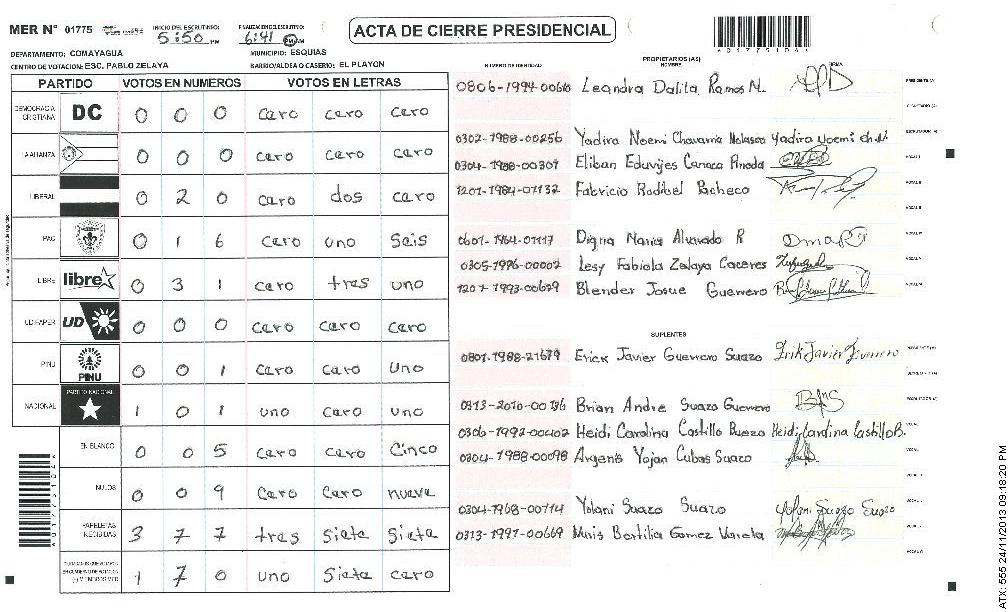 MER Nº 01775 INICIO DEL ESCRUTINIO: 5:50 PM FINALIZACION ESCRUTINIO: 6:41 PM ACTA DE CIERRE PRESIDENCIAL
DEPARTAMENTO: COMAYAGUA MUNICIPIO: ESQUIAS
CENTRO DE VOTACION: ESC. PABLO ZELAYA BARRIO/ALDEA O CASERIO: EL PLAYON
PARTIDO VOTOS EN NUMEROS VOTOS EN LETRAS
DEMOCRACIA CRISTIANA DC 0 0 0 cero cero cero
LA ALIANZA 0 0 0 cero cero cero
LIBERAL 0 2 0 cero dos cero
PAC 0 1 6 cero uno seis
LIBRE libre 0 3 1 cero tres uno
UD FAPER UD 0 0 0 cero cero cero
PINU PINU 0 0 1 cero cero uno
NACIONAL PARTIDO NACIONAL 1 0 1 uno cero uno
EN BLANCO 0 0 5 cero cero cinco
NULOS 0 0 9 cero cero nueve
PAPELETAS RECIBIDAS 3 7 7 tres siete siete
1 7 0 uno siete cero
NUMERO DE IDENTIDAD PROPIETARIOS (AS) NOMBRE FIRMA
0806-1994-00610 Leandra Dalila Ramos M.
0302-1988-00256 Yadira Noemi Chavarria Nolasco Yadira Noemi Ch.N
0304-1988-00309 Eliban Eduvijes Canaca Pineda
1201-1984-01132 Fabricio Pacheco
0601-1964-01117 Digna Maria Alvarado R
0305-1996-00002 Lesy Fabiola Zelaya Caceres
1201-1993-00629 Blender Josue Guerrero
SUPLENTES
0801-1988-21679 Erick Javier Guerrero Suazo Erik Javier Guerrero
0313-2010-00136 Brian Andre Suazo Guerrero
0306-1992-00402 Heidi Carolina Castillo Buezo Heidi Carolina Castillo B.
0304-1988-00098 Argenis Yojan Cubas Suazo
0304-1968-00114 Yolani Suazo Suazo Yolani Suazo Suazo
0313-1991-00669 Bertilia Gomez Varela
ATX: 555 24/11/2013 09:18:20 PM